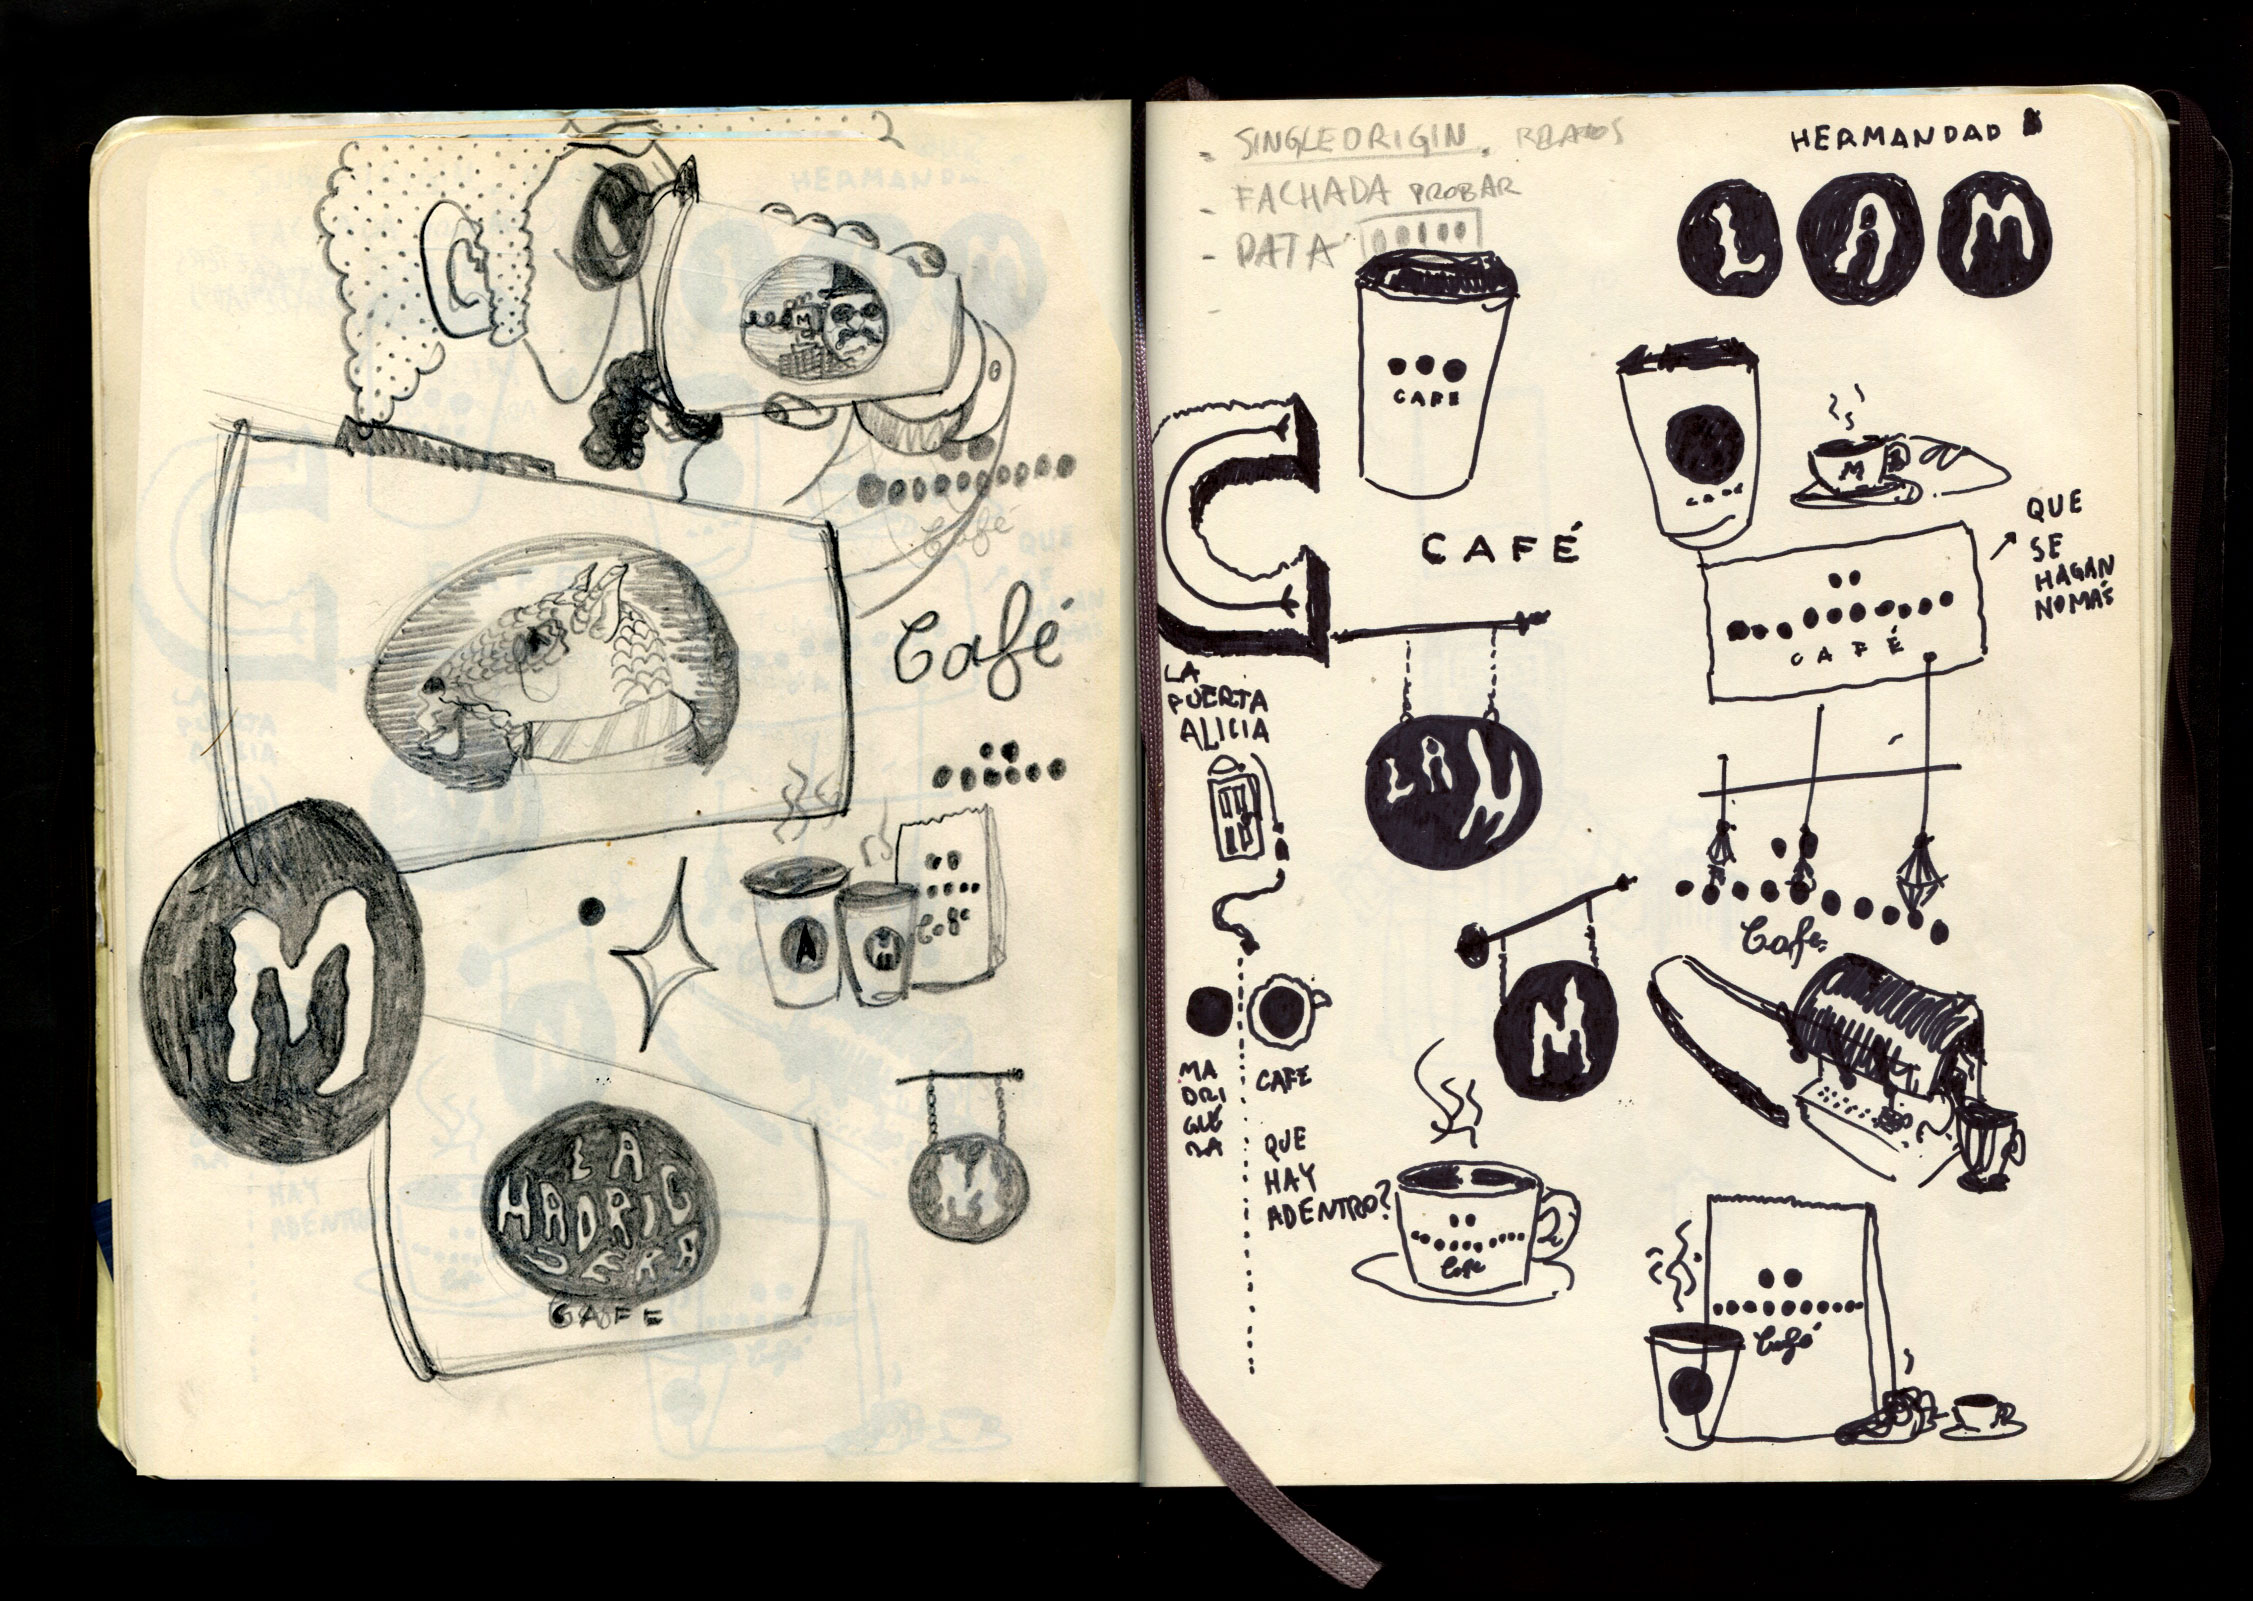 M
Café
Café
A
M
Café
M
LA
MADRIG
UERA
CAFE
M
- SINGLEORIGIN.
- FACHADA PROBAR
- DATA
HERMANDAD
L A M
CAFE
CAFE
M
C
CAFÉ
QUE
SE
HAGAN
NOMÁS
CAFÉ
LA
PUERTA
ALICIA
LAM
Café
M
MA
DRI
GUE
RA
CAFE
QUE
HAY
ADENTRO?
Café
Café